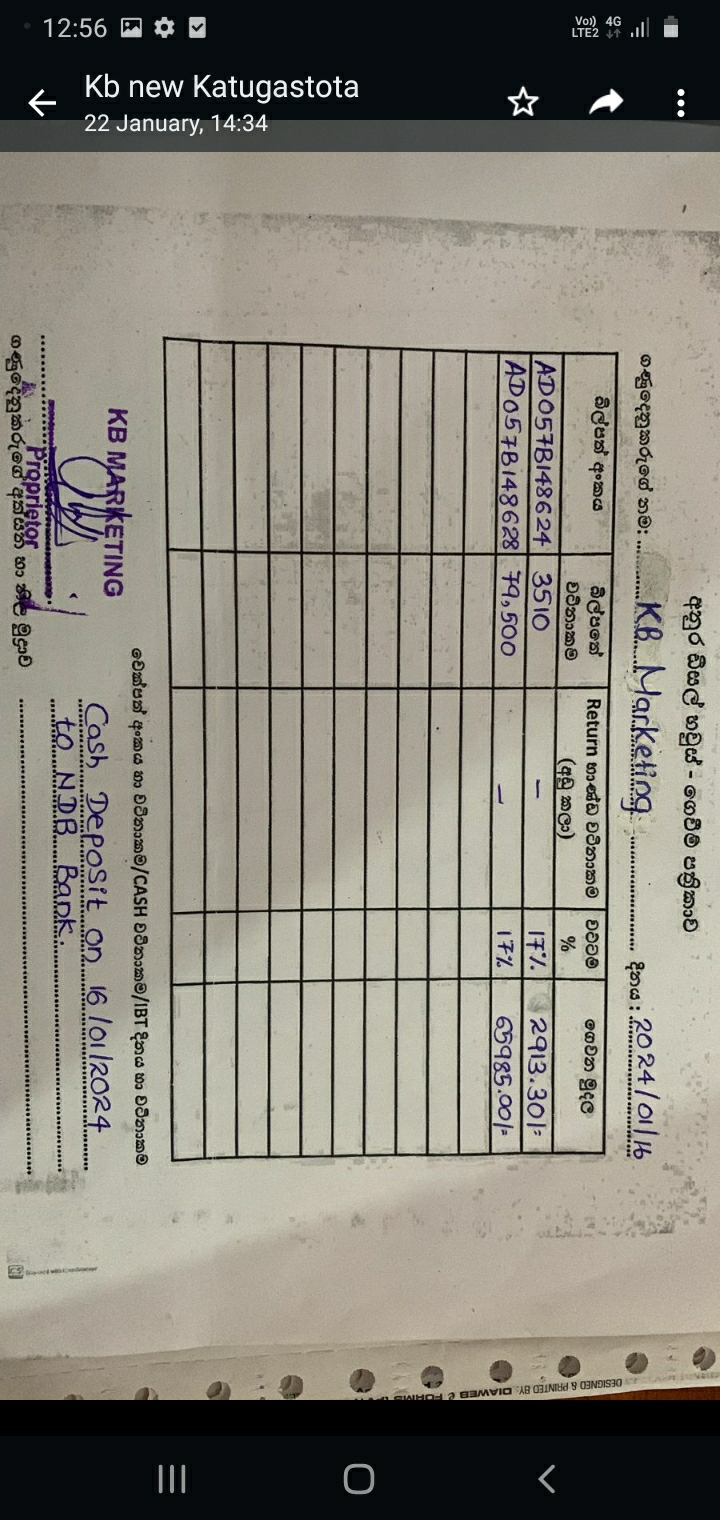 12:56
Vo)) 4G
LTE2
Kb new Katugastota
22 January, 14:34
අනුර ඩීසල් හවුස් - ගෙවීම් පත්‍රිකාව
ගණුදෙනුකරුගේ නම: KB Marketing. දිනය : 2024/01/16
බිල්පත් අංකය බිල්පතේ වටිනාකම Return භාණ්ඩ වටිනාකම (අඩු කලා) වට්ටම % ගෙවන මුදල
AD057B148624 3510 – 17% 2913.30/=
AD057B148628 79,500 – 17% 65985.00/=
චෙක්පත් අංකය හා වටිනාකම/CASH වටිනාකම/IBT දිනය හා වටිනාකම
Cash Deposit on 16/01/2024
to NDB Bank.
KB MARKETING
Proprietor
ගණුදෙනුකරුගේ අත්සන හා නිල මුද්‍රාව
DESIGNED & PRINTED BY: DIAWEB